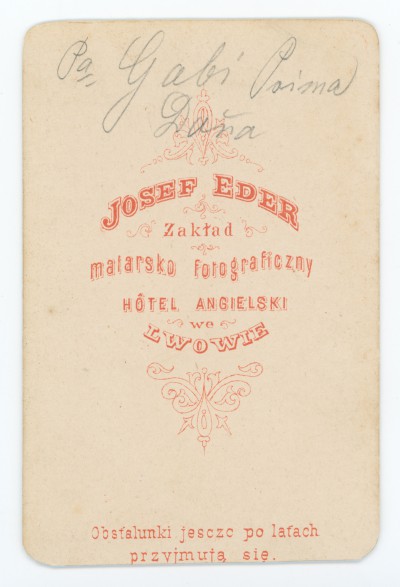 Pa Gabi Prima
Doña
JOSEF EDER
Zakład
malarsko fotograficzny
HÔTEL ANGIELSKI
we
LWOWIE
Obstalunki jeszc po latach
przyjmują się.